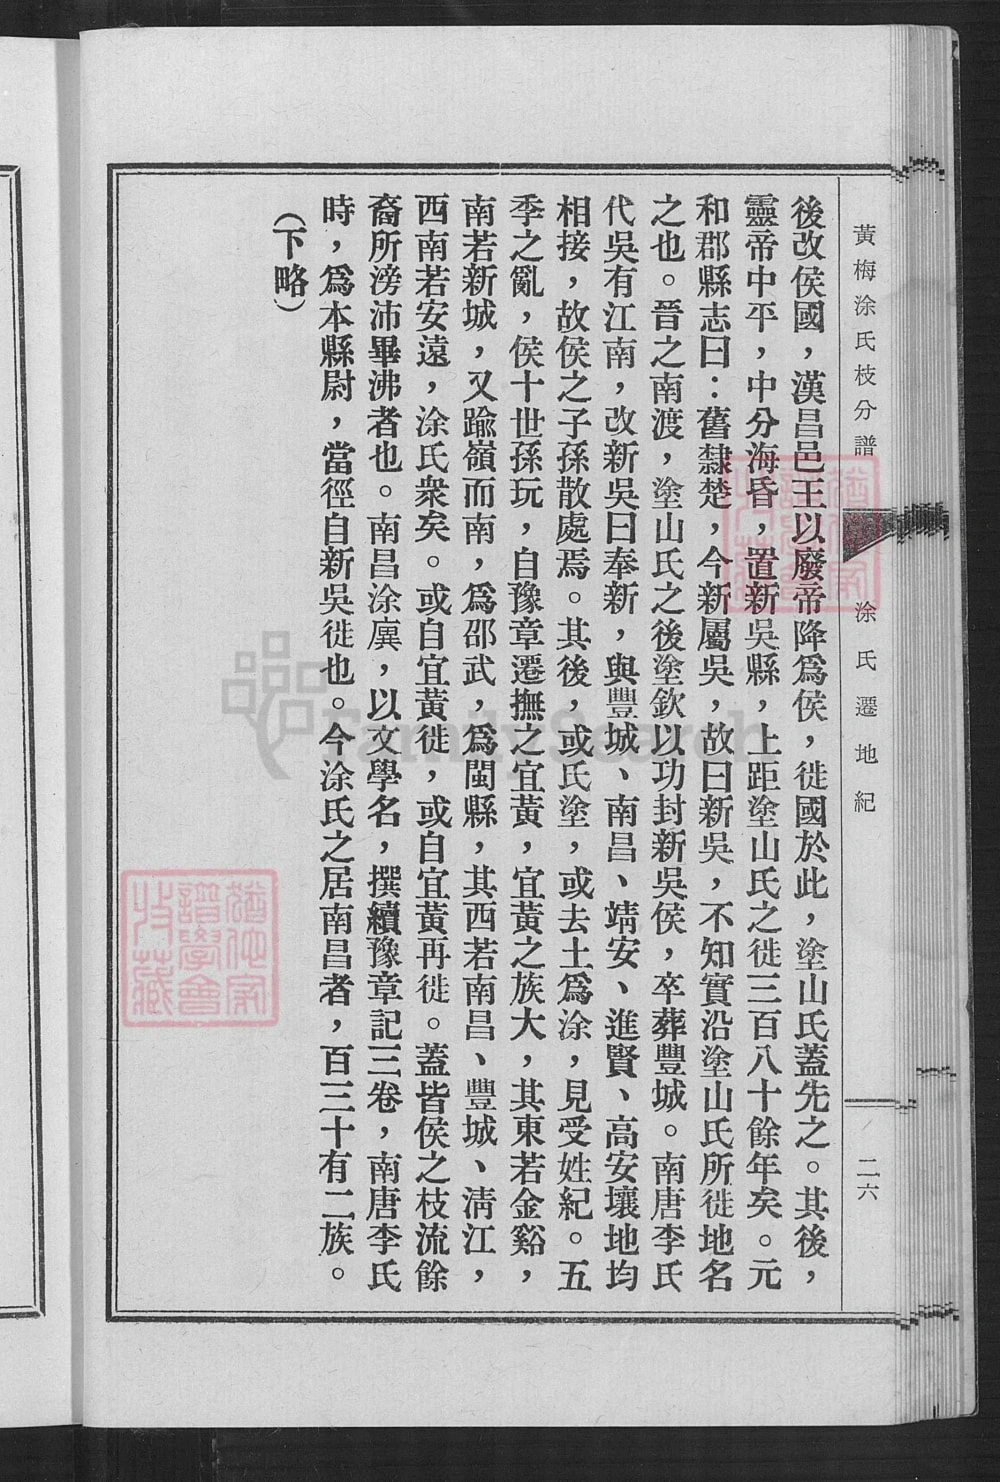 黃梅涂氏枝分譜
涂氏遷地紀
二六
後改侯國，漢昌邑王以廢帝降爲侯，徙國於此，塗山氏蓋先之。其後，
靈帝中平，中分海昏，置新吳縣，上距塗山氏之徙三百八十餘年矣。元
和郡縣志曰：舊隸楚，今新屬吳，故曰新吳，不知實沿塗山氏所徙地名
之也。晉之南渡，塗山氏之後塗欽以功封新吳侯，卒葬豐城。南唐李氏
代吳有江南，改新吳曰奉新，與豐城、南昌、靖安、進賢、高安壤地均
相接，故侯之子孫散處焉。其後，或氏塗，或去土爲涂，見受姓紀。五
季之亂，侯十世孫玩，自豫章遷撫之宜黃，宜黃之族大，其東若金谿，
南若新城，又踰嶺而南，爲邵武，爲閩縣，其西若南昌、豐城、淸江，
西南若安遠，涂氏衆矣。或自宜黃徙，或自宜黃再徙。蓋皆侯之枝流餘
裔所滂沛畢沸者也。南昌涂廙，以文學名，撰續豫章記三卷，南唐李氏
時，爲本縣尉，當徑自新吳徙也。今涂氏之居南昌者，百三十有二族。
（下略）
FamilySearch